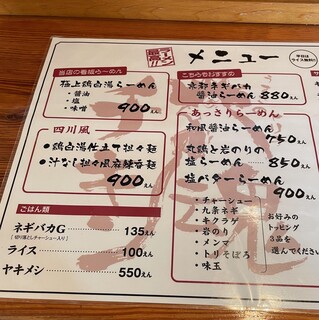 メニュー
本日は
ライス無料!!
当店の看板らーめん
極上鶏白湯らーめん
・醤油
・塩
・味噌
900えん
四川風
・鶏白湯仕立て担々麺
・汁なし担々風麻辣香麺
900えん
ごはん類
ネギバカG 135えん
(切り落としチャーシュー入り)
ライス 100えん
ヤキメシ 550えん
こちらもおすすめ
京都ネギバカ
醤油らーめん 880えん
あっさりらーめん
和風醤油らーめん
750えん
丸鶏と岩のりの
塩らーめん 850えん
塩バターらーめん
900えん
・チャーシュー
・九条ネギ
・キクラゲ
・岩のり
・メンマ
・トリそぼろ
・味玉
お好みの
トッピング
3品を
選んでください